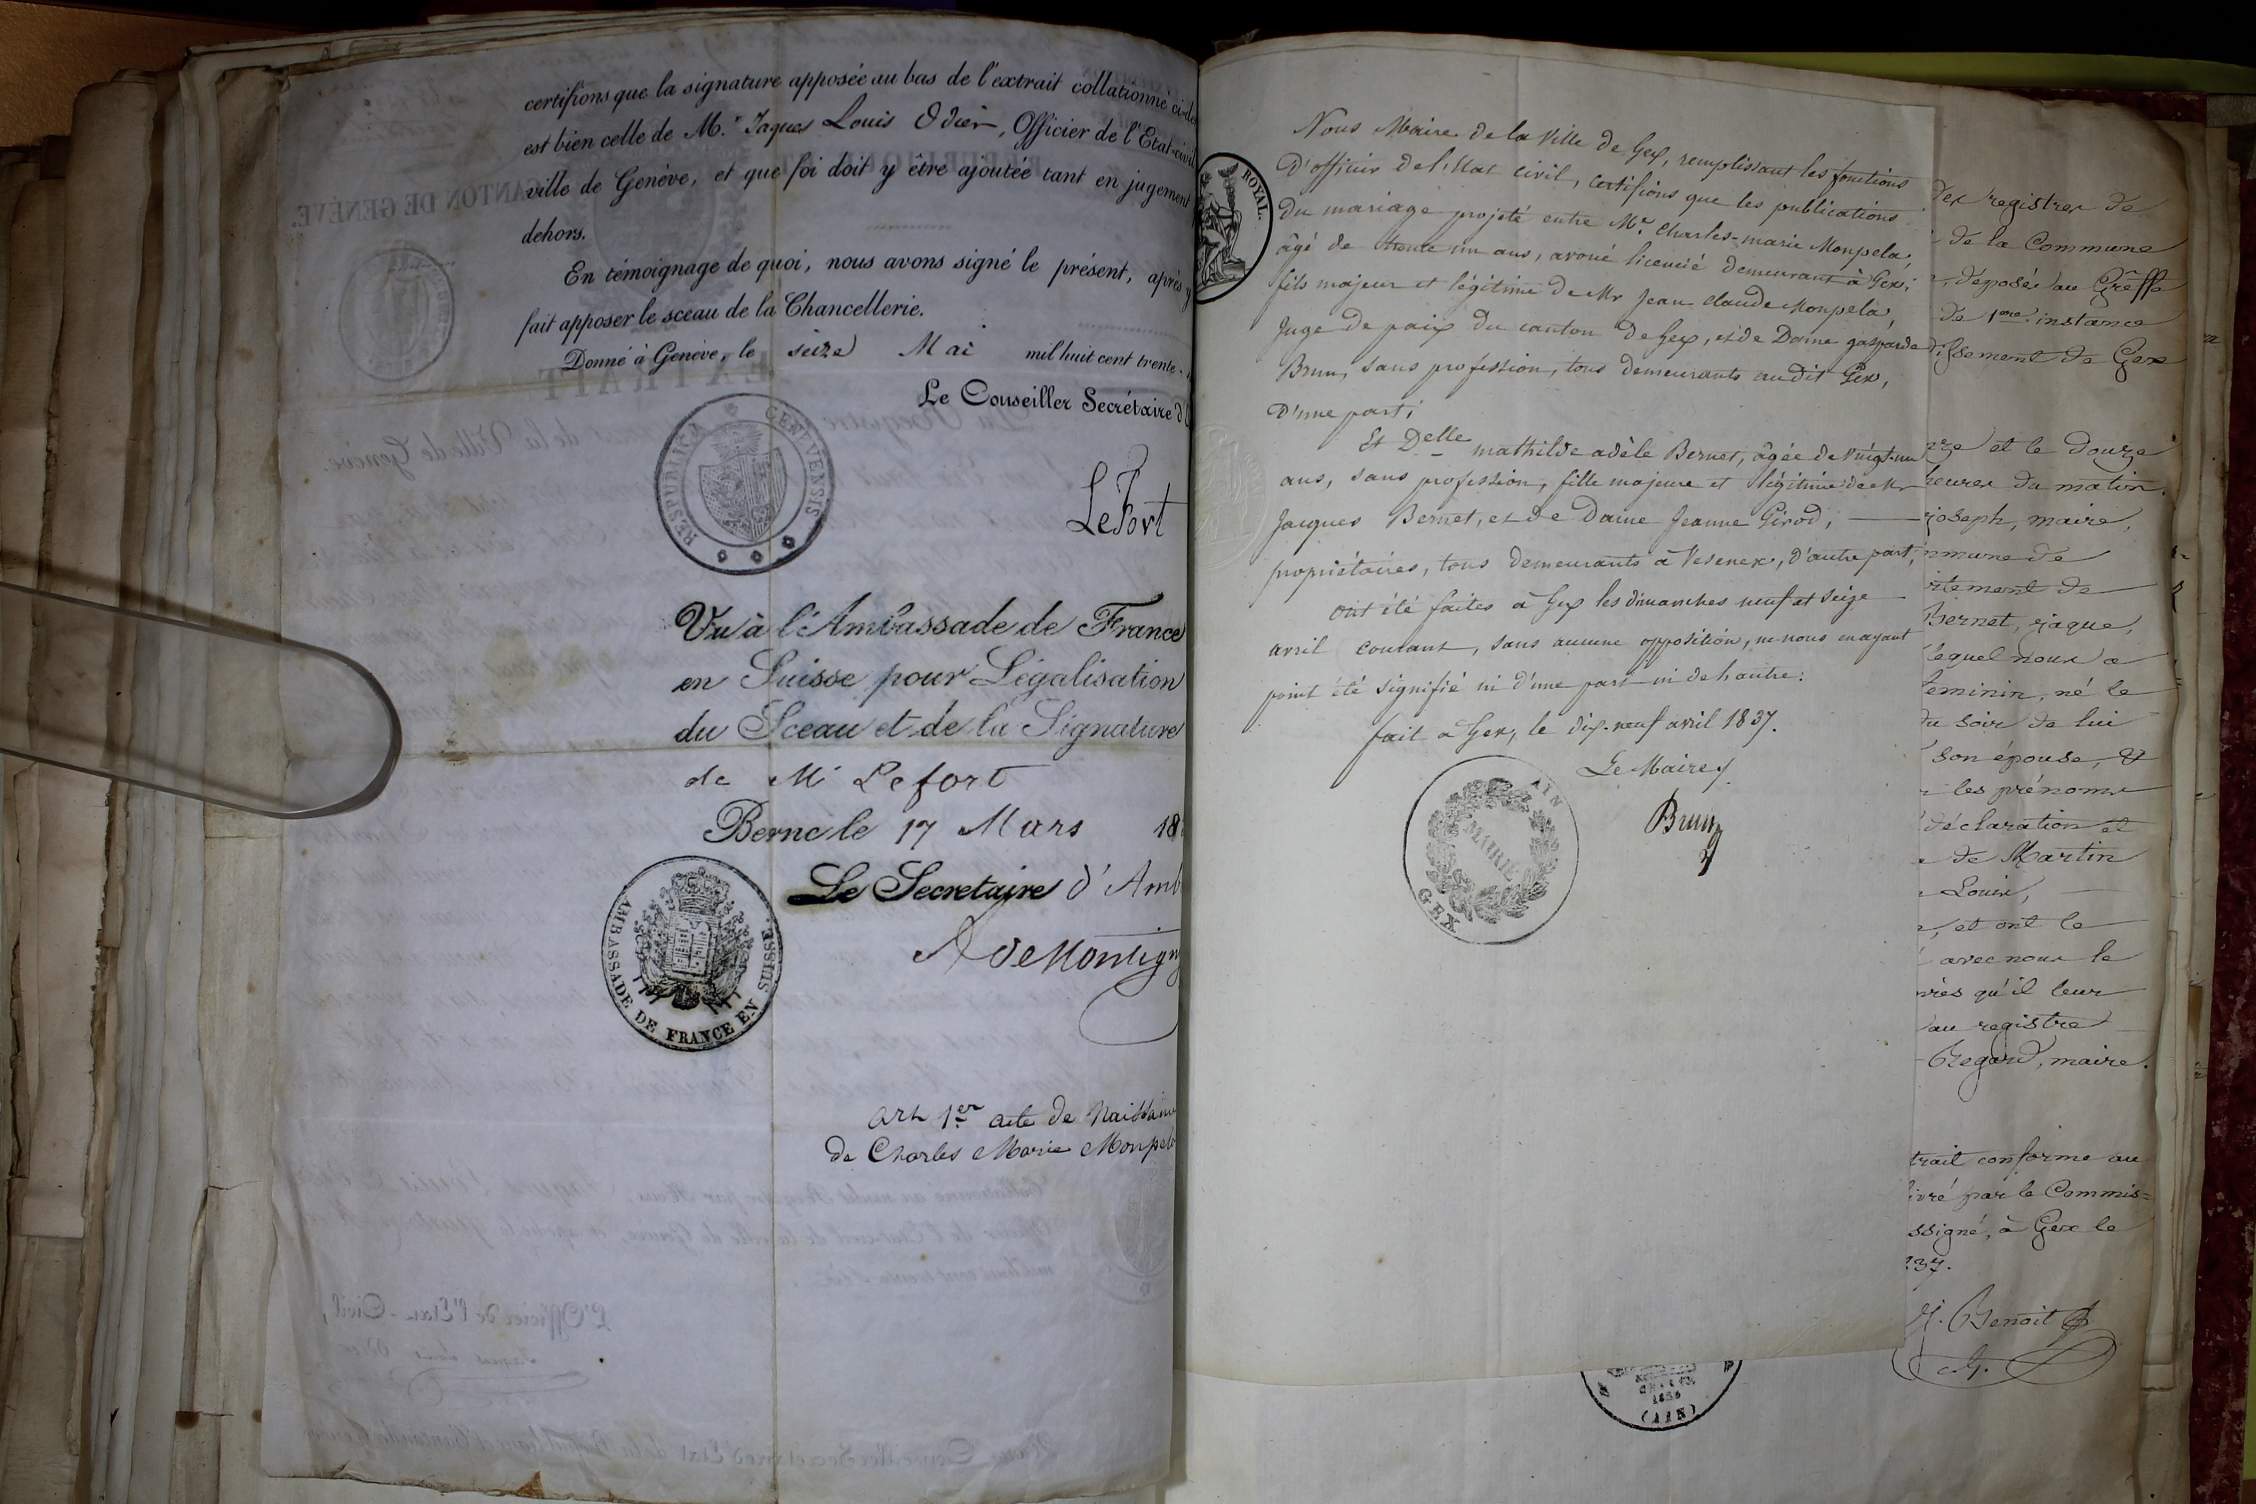 certifions que la signature apposée au bas de l'extrait collationné ci-de
est bien celle de M.r Jaques Louis Odier, Officier de l'Etat-civil
ville de Genève, et que foi doit y être ajoutée tant en jugement
dehors.
En témoignage de quoi, nous avons signé le présent, après y
fait apposer le sceau de la Chancellerie.
Donné à Genève, le seize Mai mil huit cent trente-
Le Conseiller Secrétaire d'
RESPUBLICA GENEVENSIS
LeFort
Vu à l'Ambassade de France
en Suisse pour Légalisation
du Sceau et de la Signature
de Mr Lefort
Berne le 17 Mars 18
Le Secretaire d'Amb
AMBASSADE DE FRANCE EN SUISSE.
A deMontigny
Art 1er acte de Naissan
de Charles Marie Monpel
ROYAL.
Nous Maire de la Ville de Gex, remplissant les fonctions
D'officier de l'Etat civil, certifions que les publications
du mariage projeté entre Mr. Charles-marie Monpela,
âgé de trente un ans, avoué licencié demeurant à Gex,
fils majeur et légitime de Mr Jean claude Monpela,
Juge de paix du canton de Gex, et de Dame gasparde
Brun, sans profession, tous demeurants audit Gex,
D'une part;
Et Delle mathilde adèle Bernet, âgée de vingt-un
ans, sans profession, fille majeure et légitime de Mr
Jacques Bernet, et de Dame Jeanne Girod,
propriétaires, tous demeurants à Vesenex, d'autre part,
ont été faites à Gex les dimanches neuf et seize
avril courant, sans aucune opposition, ne nous en ayant
point été signifié ni d'une part ni de hautre:
fait à Gex, le dix-neuf avril 1837.
Le Maire
Brun
MAIRIE GEX AIN
des registres de
de la Commune
déposés au Greffe
de 1ere instance
issement de Gex
et le douze
heures du matin.
joseph, maire,
mmune de
rtement de
Bernet, jaque,
lequel nous a
feminin, né le
du soir de lui
son épouse, &
les prénoms
déclaration et
de Martin
Louis,
et ont le
avec nous le
près qu'il leur
au registre
Regard, maire.
trait conforme au
livré par le Commis=
ssigné, à Gex le
37.
Benoit
(AIN)